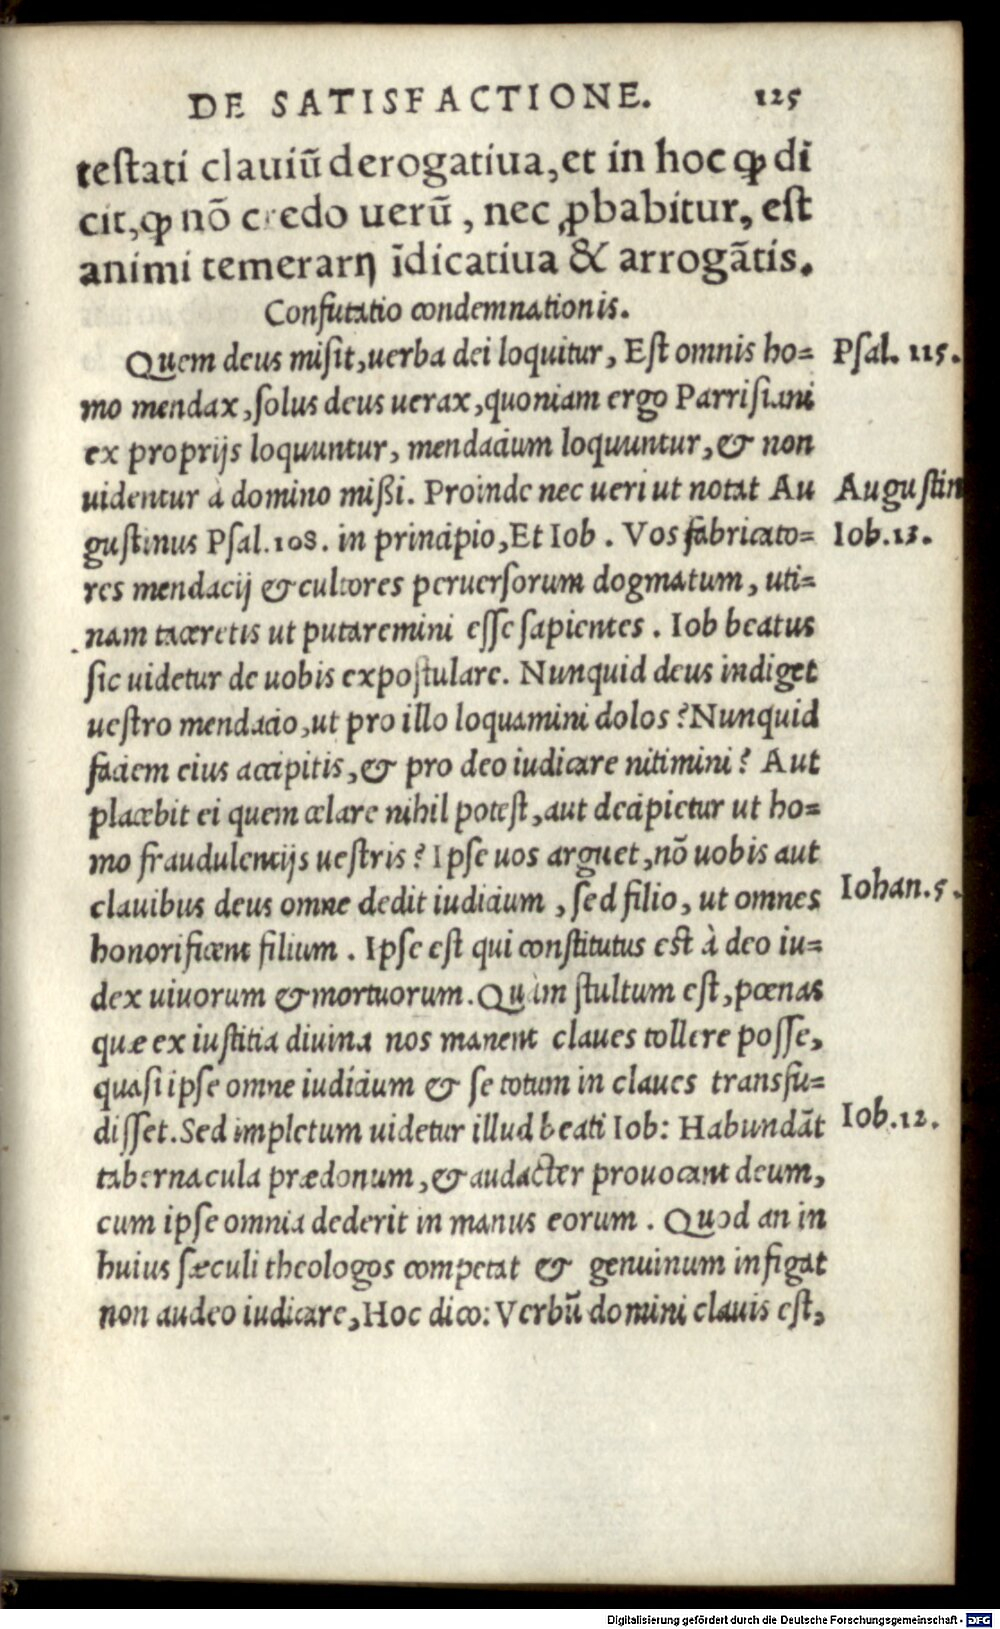 DE SATISFACTIONE. 125
testati clauiũ derogatiua, et in hoc ꝙ di
cit, ꝙ nõ credo uerũ, nec ꝓbabitur, est
animi temerarij ĩdicatiua & arrogãtis.
Confutatio condemnationis.
Quem deus misit, uerba dei loquitur, Est omnis ho= Psal. 115.
mo mendax, solus deus uerax, quoniam ergo Parrisiani
ex proprijs loquuntur, mendacium loquuntur, & non
uidentur à domino mißi. Proinde nec ueri ut notat Au Augustin
gustinus Psal. 108. in principio, Et Iob. Vos fabricato= Iob. 13.
res mendacij & cultores peruersorum dogmatum, uti=
nam taceretis ut putaremini esse sapientes. Iob beatus
sic uidetur de uobis expostulare. Nunquid deus indiget
uestro mendacio, ut pro illo loquamini dolos? Nunquid
faciem eius accipitis, & pro deo iudicare nitimini? Aut
placebit ei quem celare nihil potest, aut decipietur ut ho=
mo fraudulentijs uestris? Ipse uos arguet, nõ uobis aut
clauibus deus omne dedit iudicium, sed filio, ut omnes Iohan. 5.
honorificent filium. Ipse est qui constitutus est à deo iu=
dex uiuorum & mortuorum. Quàm stultum est, pœnas
quæ ex iustitia diuina nos manent claues tollere posse,
quasi ipse omne iudicium & se totum in claues transfu=
disset. Sed impletum uidetur illud beati Iob: Habundãt Iob. 12.
tabernacula prædonum, & audacter prouocant deum,
cum ipse omnia dederit in manus eorum. Quod an in
huius sæculi theologos competat & genuinum infigat
non audeo iudicare, Hoc dico: Verbũ domini clauis est,
Digitalisierung gefördert durch die Deutsche Forschungsgemeinschaft - DFG